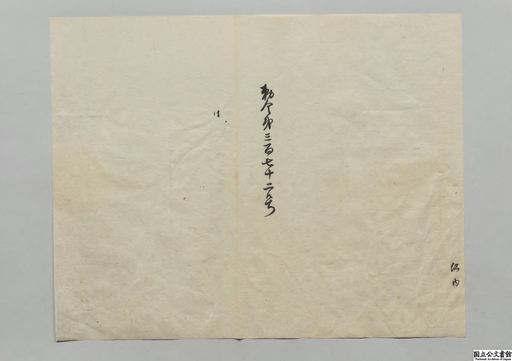 勅令第三百七十二号
国立公文書館
National Archives of Japan